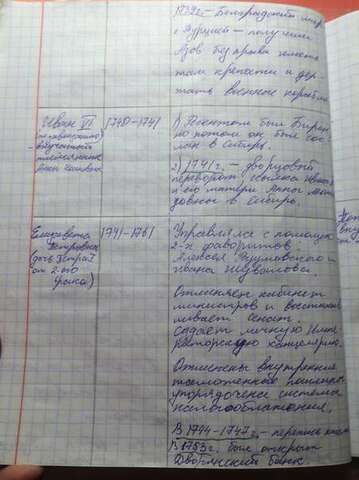 1739г. – Белградский мир
с Турцией – получили
Азов без права иметь
там крепости и дер-
жать военные корабли.
Иван VI
внучатый
племянник
Анны Иоанновны
1740-1741
1) Регентом был Бирон
но потом он был сос-
лан в Сибирь.
2) 1741 г. – дворцовый
переворот, ссылка Ивана
и его матери Анны Лео-
довны в Сибирь.
Елизавета
Петровна
(дочь Петра I
от 2-ого
брака)
1741-1761
Управляла с помощью
2-х фаворитов:
Алексея Разумовского и
Ивана Шувалова.
Отменяет кабинет
министров и восстана-
вливает сенат,
создает личную Импе-
раторскую канцелярию.
Отменены внутренние
таможенные пошлины
упорядочена система
налогообложения.
В 1744-1747г. – перепись
В 1753г. был открыт
Дворянский банк.